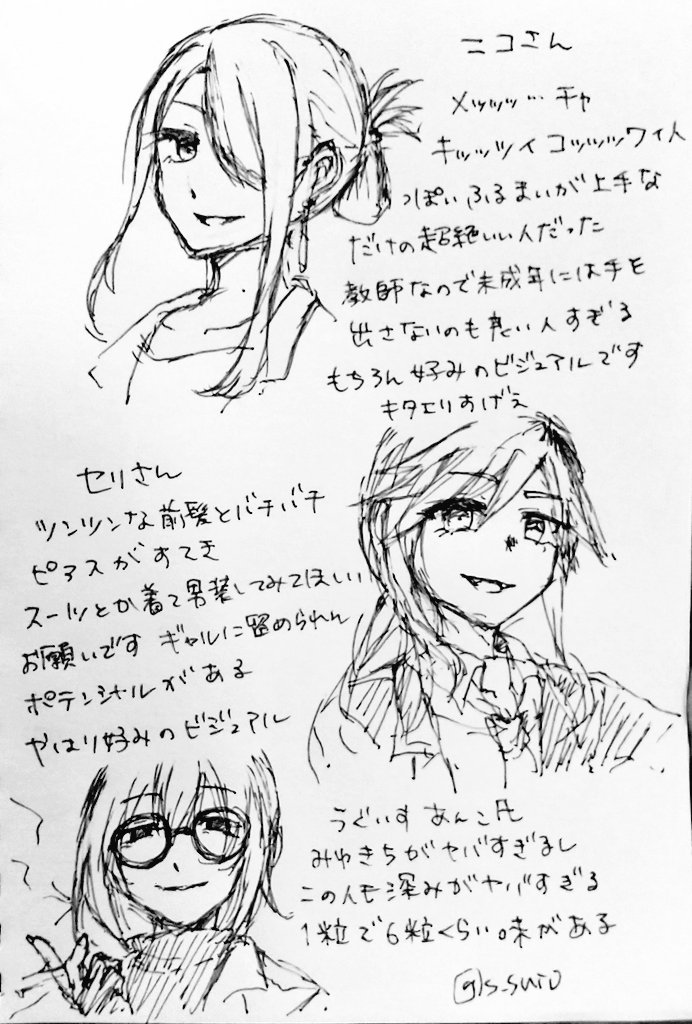 ニコさん
メッッッ…チャ
キッッッツイ コッッッワイ人
っぽいふるまいが上手な
だけの超絶いい人だった
教師なので未成年には手を
出さないのも良い人すぎる
もちろん好みのビジュアルです
キタエリあげぇ
セリさん
ツンツンな前髪とバチバチ
ピアスがすてき
スーツとか着て男装してみてほしい
お願いです ギャルに留められん
ポテンシャルがある
やはり好みのビジュアル
うぐいすあんこ氏
みゆきちがヤバすぎるし
この人も深みがヤバすぎる
1粒で6粒くらい味がある